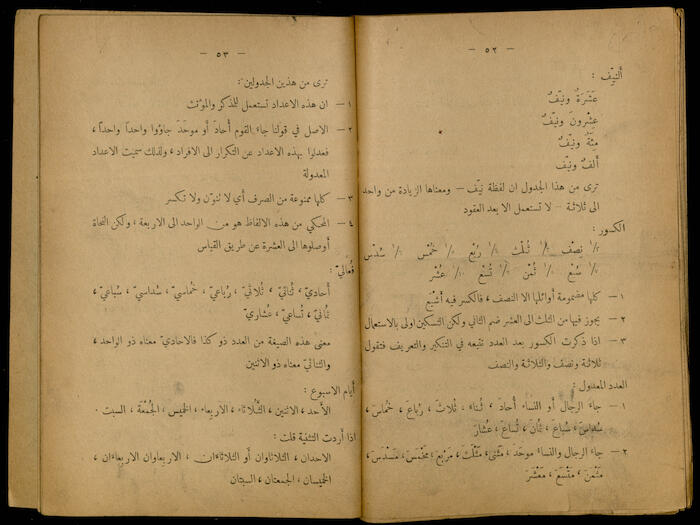 — ٥٢ —
ألنيِّف :
عَشَرَةٌ ونيّفٌ
عِشْرونَ ونيّفٌ
مِئَةٌ ونيّفٌ
ألفٌ ونيّف
ترى من هذا الجدول ان لفظة نيّف – ومعناها الزيادة من واحد
الى ثلاثة – لا تستعمل الا بعد العقود
الكسور :
نِصْف ثُلْث رُبْع خُمْس سُدْس
سُبْع ثُمْن تُسْع عُشْر
١ – كلها مضمومة أوائلها الا النصف ، فالكسر فيه أشيع
٢ – يجوز فيها من الثلث الى العشر ضم الثاني ولكن التسكين اولى بالاستعمال
٣ – اذا ذكرت الكسور بعد العدد تتبعه في التنكير والتعريف فتقول
ثلاثة ونصف والثلاثة والنصف
العدد المعدول :
١ – جاء الرجال أو النساء أُحادَ ، ثُناءَ ، ثُلاثَ ، رُباعَ ، خُماسَ ،
سُداسَ ، سُباعَ ، ثُمانَ ، تُساعَ ، عُشارَ
٢ – جاء الرجال والنساء مَوحَدَ ، مَثْنى ، مَثْلَثَ ، مَرْبَعَ ، مَخْمَسَ ، مَسْدَسَ ،
مَثْمَنَ ، مَتْسَعَ ، مَعْشَرَ
— ٥٣ —
ترى من هذين الجدولين :
١ – ان هذه الاعداد تستعمل للمذكر والمؤنث
٢ – الاصل في قولنا جاء القوم أُحادَ أو مَوحَدَ جاؤوا واحداً واحداً ،
فعدلوا بهذه الاعداد عن التكرار الى الافراد ، ولذلك سميت الاعداد
المعدولة
٣ – كلها ممنوعة من الصرف أي لا تنوّن ولا تكسر
٤ – المحكي من هذه الالفاظ هو من الواحد الى الاربعة ، ولكن النحاة
أوصلوها الى العشرة عن طريق القياس
فُعاليّ :
أُحاديّ ، ثُنائيّ ، ثُلاثيّ ، رُباعيّ ، خُماسيّ ، سُداسيّ ، سُباعيّ ،
ثُمانيّ ، تُساعيّ ، عُشاريّ
معنى هذه الصيغة من العدد ذو كذا فالاحاديّ معناه ذو الواحد ،
والثنائيّ معناه ذو الاثنين
أيام الاسبوع :
الأحد ، الاثنين ، الثُلاثاء ، الاربعاء ، الخميس ، الجُمُعَة ، السبت .
اذا أردت التثنية قلت :
الاحدان ، الثلاثاوان أو الثلاثاءان ، الاربعاوان الاربعاءان ،
الخميسان ، الجمعتان ، السبتان